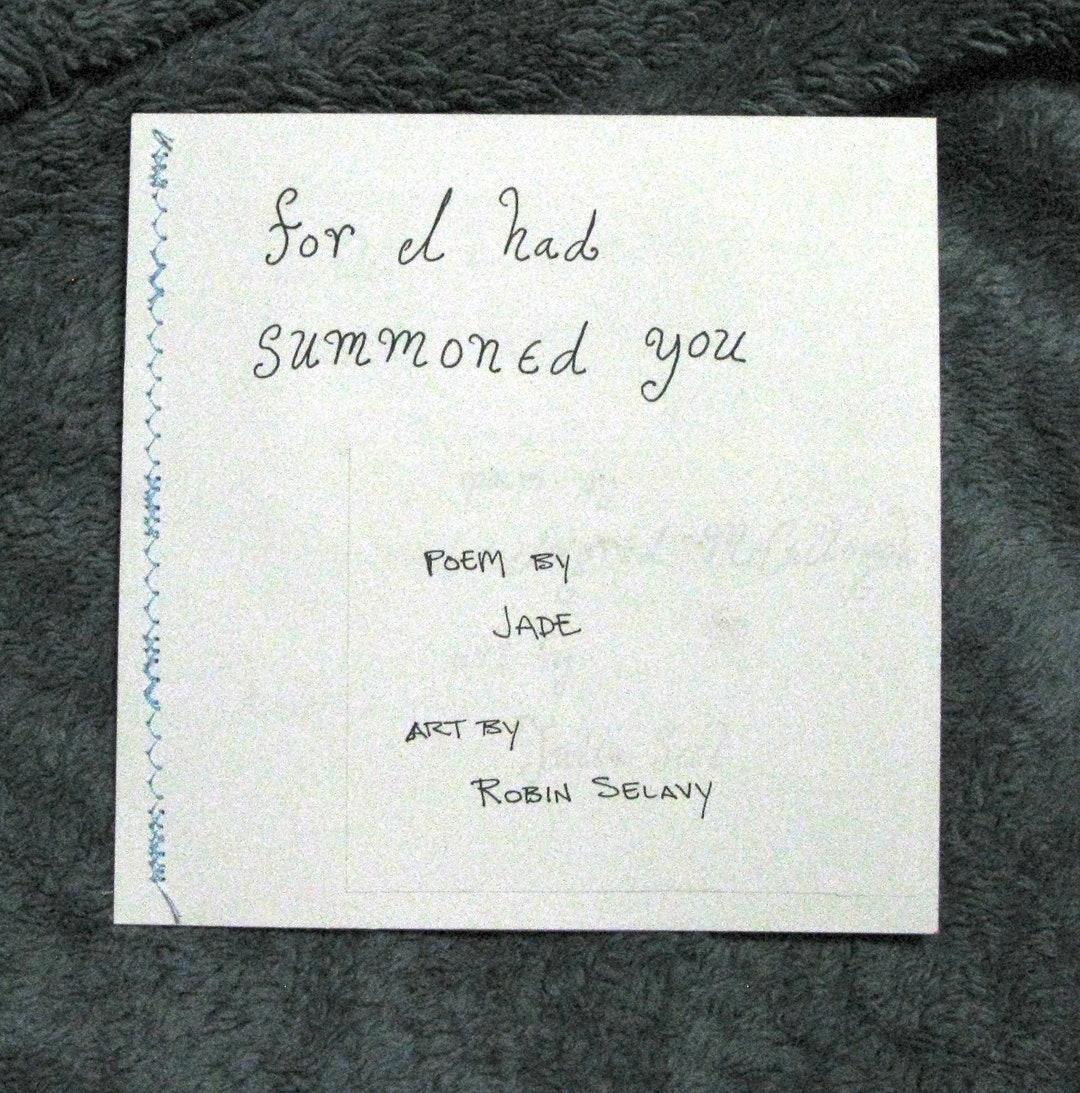 for I had
summoned you
POEM BY
JADE
ART BY
ROBIN SELAVY